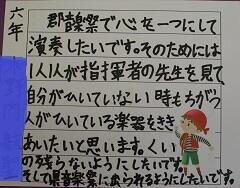 六年
郡音楽祭で心を一つにして
演奏したいです。そのためには
1人1人が指揮者の先生を見て
自分がひいていない時もちがう
人がひいている楽器をきき
あいたいと思います。くい
の残らないようにしたいです。
そして県音楽祭に出られるようにしたいです。